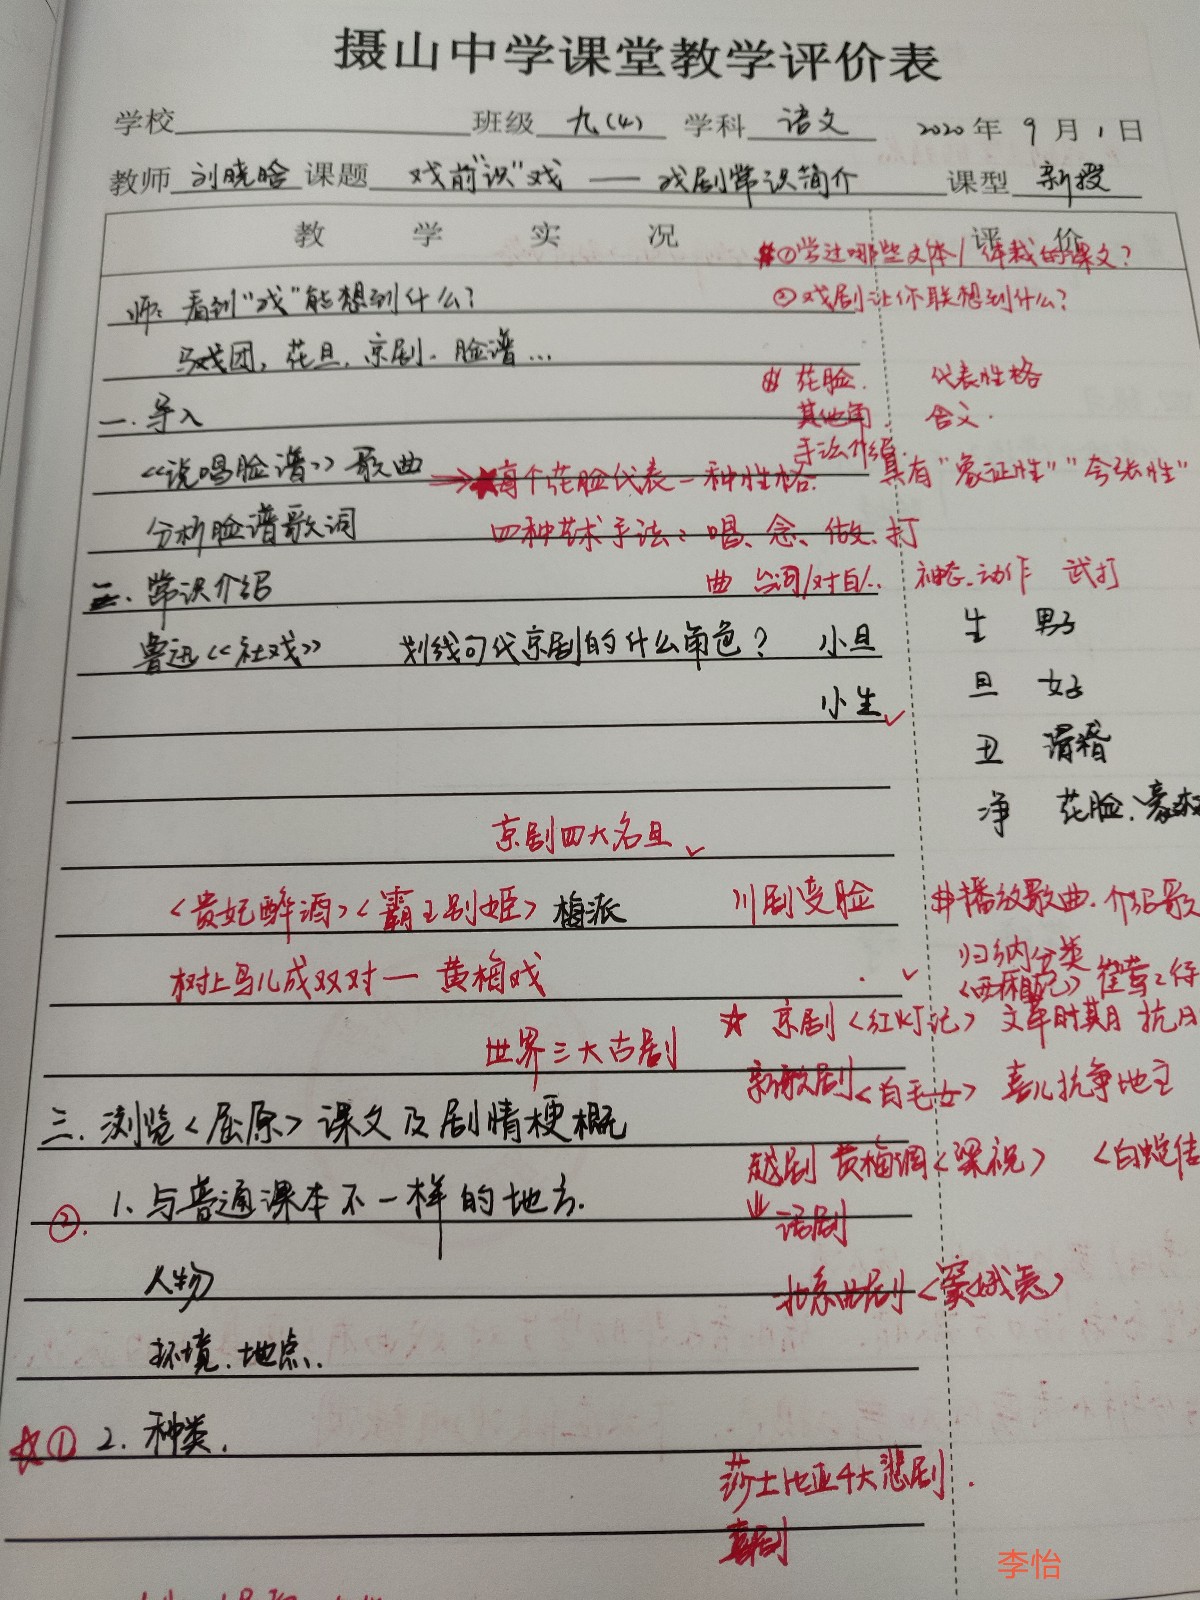 摄山中学课堂教学评价表
学校 班级 九(4) 学科 语文 2020年9月1日
教师 刘晓晗 课题 戏前"识"戏 — 戏剧常识简介 课型 新授
教 学 实 况 评 价
①学过哪些文体/体裁的课文?
师: 看到"戏"能想到什么?
②戏剧让你联想到什么?
马戏团, 花旦, 京剧. 脸谱...
花脸. 代表性格
一. 导入
其他角. 含义.
手法介绍.
《说唱脸谱》歌曲
→★每个花脸代表一种性格. 具有"象征性""夸张性"
分析脸谱歌词
四种艺术手法: 唱、念、做、打
曲 台词/对白/.. 神态.动作 武打
二. 常识介绍
鲁迅《社戏》 划线句代京剧的什么角色? 小旦
小生✓
生 男子
旦 女子
丑 滑稽
净 花脸.
京剧四大名旦✓
<贵妃醉酒><霸王别姬>梅派 川剧变脸
#播放歌曲.介绍歌
树上鸟儿成双对 — 黄梅戏
归纳分类
《西厢记》崔莺
☆ 京剧<红灯记> 文革时期 抗
世界三大古剧
新歌剧<白毛女> 喜儿抗争地主
三. 浏览<屈原>课文及剧情梗概
越剧 黄梅调<梁祝> <白蛇传
②. 1. 与普通课本不一样的地方.
话剧
人物
北京曲剧<窦娥冤>
环境. 地点.
☆① 2. 种类.
莎士比亚4大悲剧.
喜剧
李怡